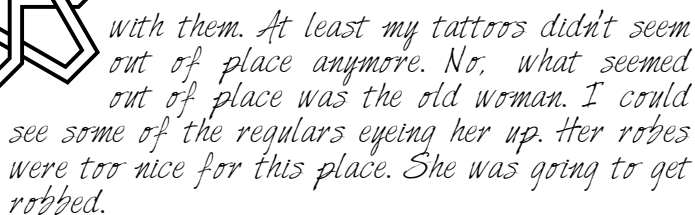 with them. At least my tattoos didn't seem
out of place anymore. No, what seemed
out of place was the old woman. I could
see some of the regulars eyeing her up. Her robes
were too nice for this place. She was going to get
robbed.